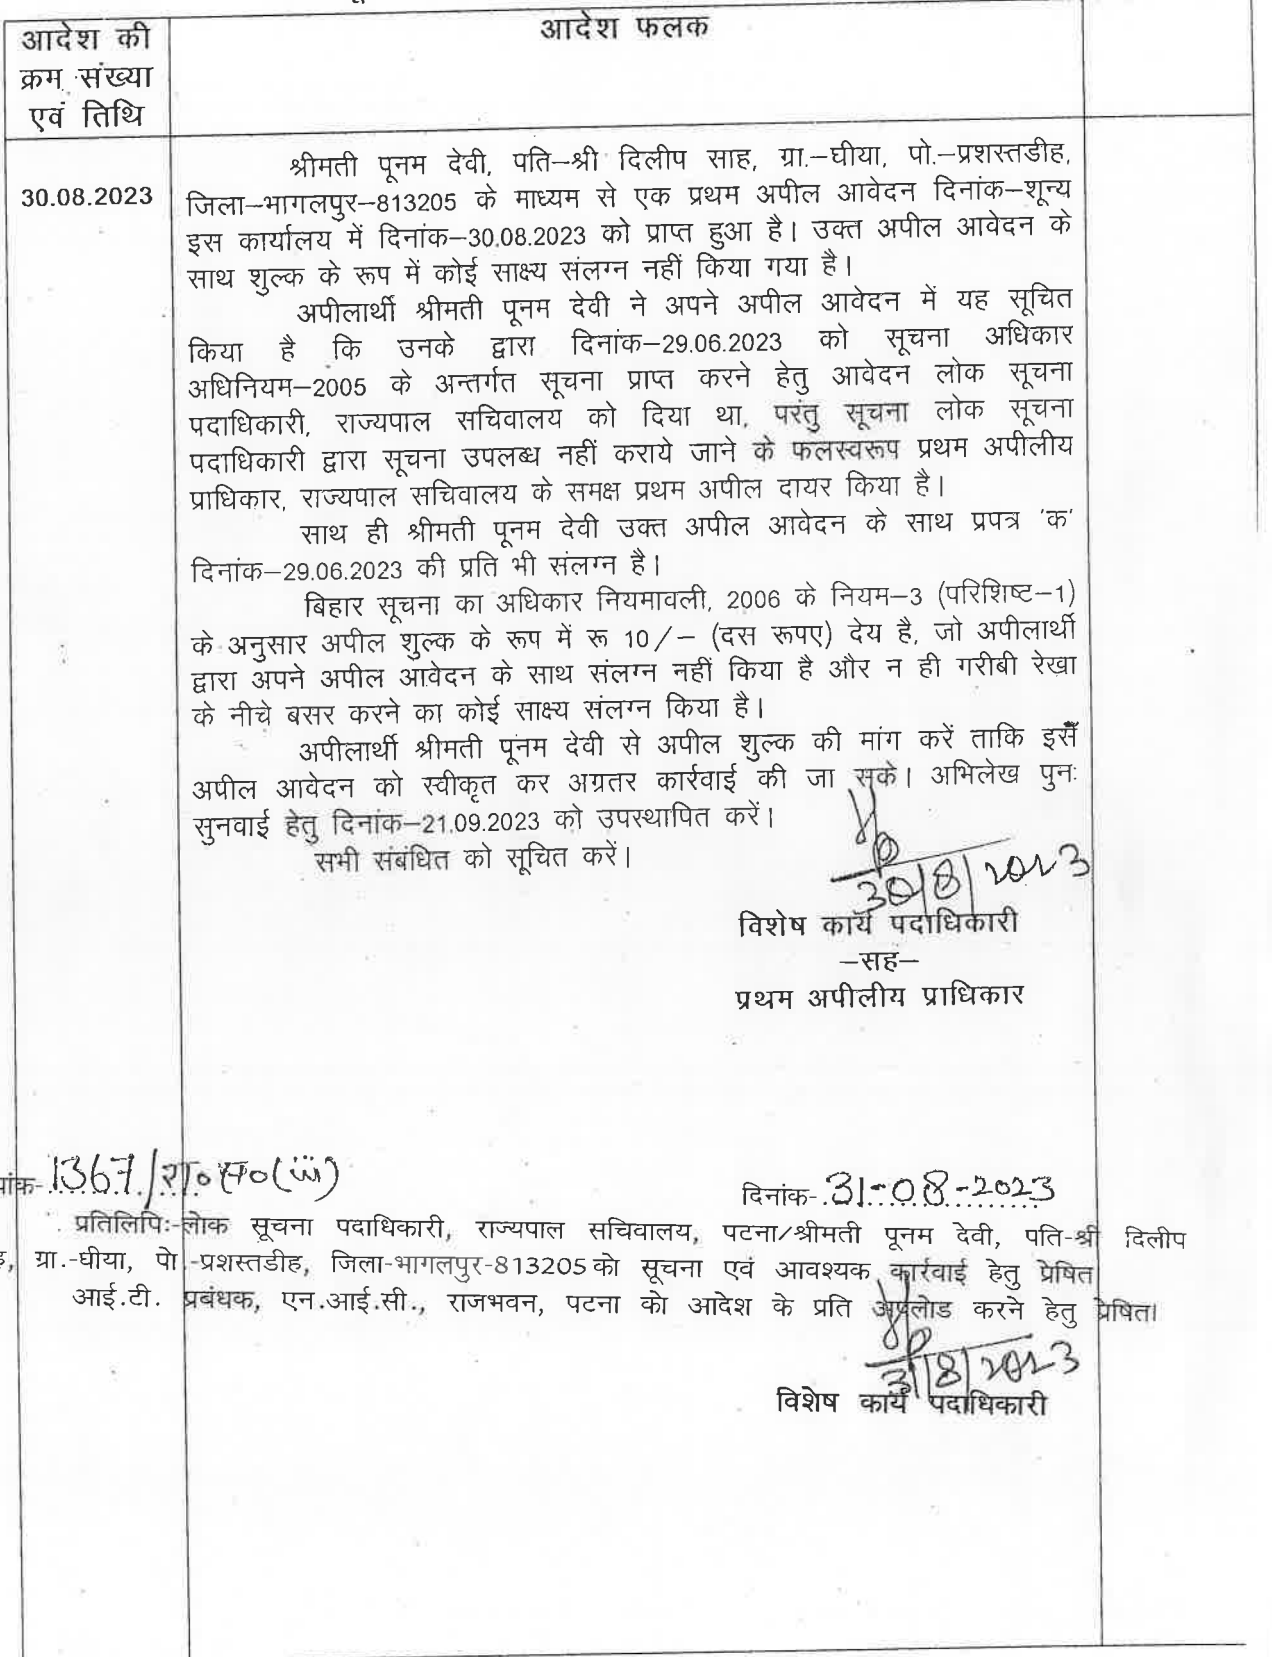 आदेश की
क्रम संख्या
एवं तिथि
आदेश फलक
30.08.2023
श्रीमती पूनम देवी, पति–श्री दिलीप साह, ग्रा.–घीया, पो.–प्रशस्तडीह,
जिला–भागलपुर–813205 के माध्यम से एक प्रथम अपील आवेदन दिनांक–शून्य
इस कार्यालय में दिनांक–30.08.2023 को प्राप्त हुआ है। उक्त अपील आवेदन के
साथ शुल्क के रूप में कोई साक्ष्य संलग्न नहीं किया गया है।
अपीलार्थी श्रीमती पूनम देवी ने अपने अपील आवेदन में यह सूचित
किया है कि उनके द्वारा दिनांक–29.06.2023 को सूचना अधिकार
अधिनियम–2005 के अन्तर्गत सूचना प्राप्त करने हेतु आवेदन लोक सूचना
पदाधिकारी, राज्यपाल सचिवालय को दिया था, परंतु सूचना लोक सूचना
पदाधिकारी द्वारा सूचना उपलब्ध नहीं कराये जाने के फलस्वरूप प्रथम अपीलीय
प्राधिकार, राज्यपाल सचिवालय के समक्ष प्रथम अपील दायर किया है।
साथ ही श्रीमती पूनम देवी उक्त अपील आवेदन के साथ प्रपत्र 'क'
दिनांक–29.06.2023 की प्रति भी संलग्न है।
बिहार सूचना का अधिकार नियमावली, 2006 के नियम–3 (परिशिष्ट–1)
के अनुसार अपील शुल्क के रूप में रू 10/– (दस रूपए) देय है, जो अपीलार्थी
द्वारा अपने अपील आवेदन के साथ संलग्न नहीं किया है और न ही गरीबी रेखा
के नीचे बसर करने का कोई साक्ष्य संलग्न किया है।
अपीलार्थी श्रीमती पूनम देवी से अपील शुल्क की मांग करें ताकि इस
अपील आवेदन को स्वीकृत कर अग्रतर कार्रवाई की जा सके। अभिलेख पुनः
सुनवाई हेतु दिनांक–21.09.2023 को उपस्थापित करें।
सभी संबंधित को सूचित करें।
30/8/2023
विशेष कार्य पदाधिकारी
–सह–
प्रथम अपीलीय प्राधिकार
पांक-1367/रा०स०(iii)
दिनांक-31-08-2023
प्रतिलिपिः-लोक सूचना पदाधिकारी, राज्यपाल सचिवालय, पटना/श्रीमती पूनम देवी, पति-श्री दिलीप
ह, ग्रा.-घीया, पो.-प्रशस्तडीह, जिला-भागलपुर-813205 को सूचना एवं आवश्यक कार्रवाई हेतु प्रेषित
आई.टी. प्रबंधक, एन.आई.सी., राजभवन, पटना को आदेश के प्रति अपलोड करने हेतु प्रेषित।
31/8/2023
विशेष कार्य पदाधिकारी